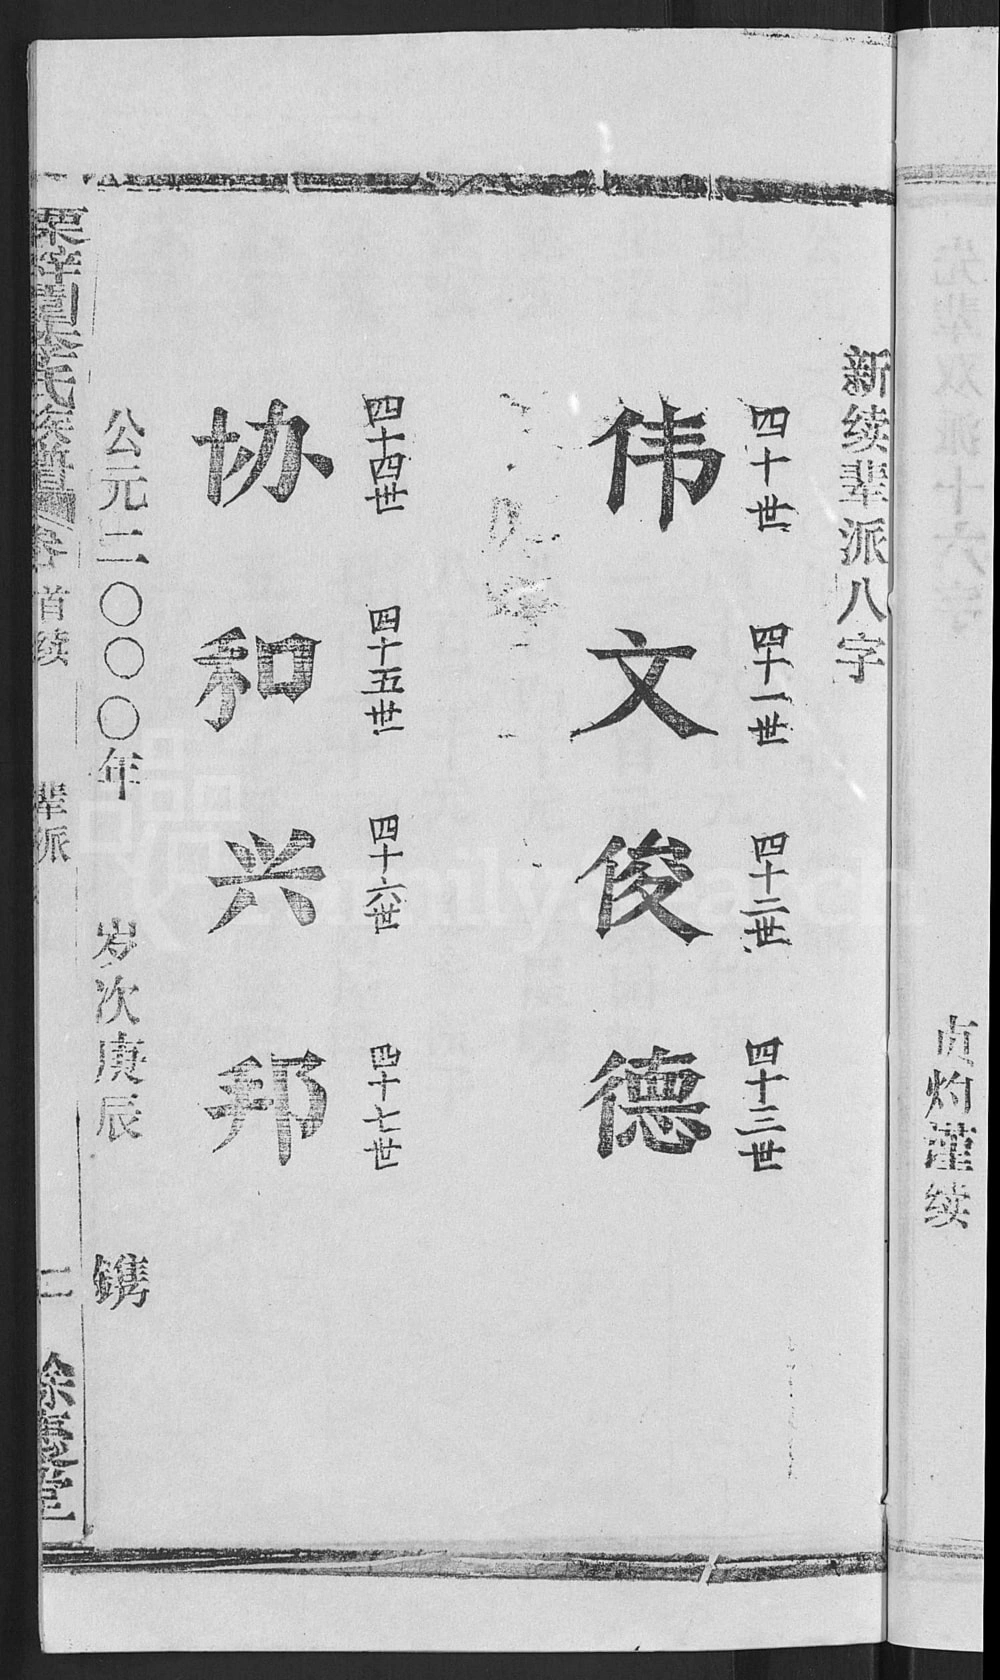 贞灼谨续
新续辈派八字
四十世 四十一世 四十二世 四十三世
伟 文 俊 德
四十四世 四十五世 四十六世 四十七世
协 和 兴 邦
公元二〇〇〇年 岁次庚辰 镌
氏族谱 卷首续 辈派 二 余庆堂